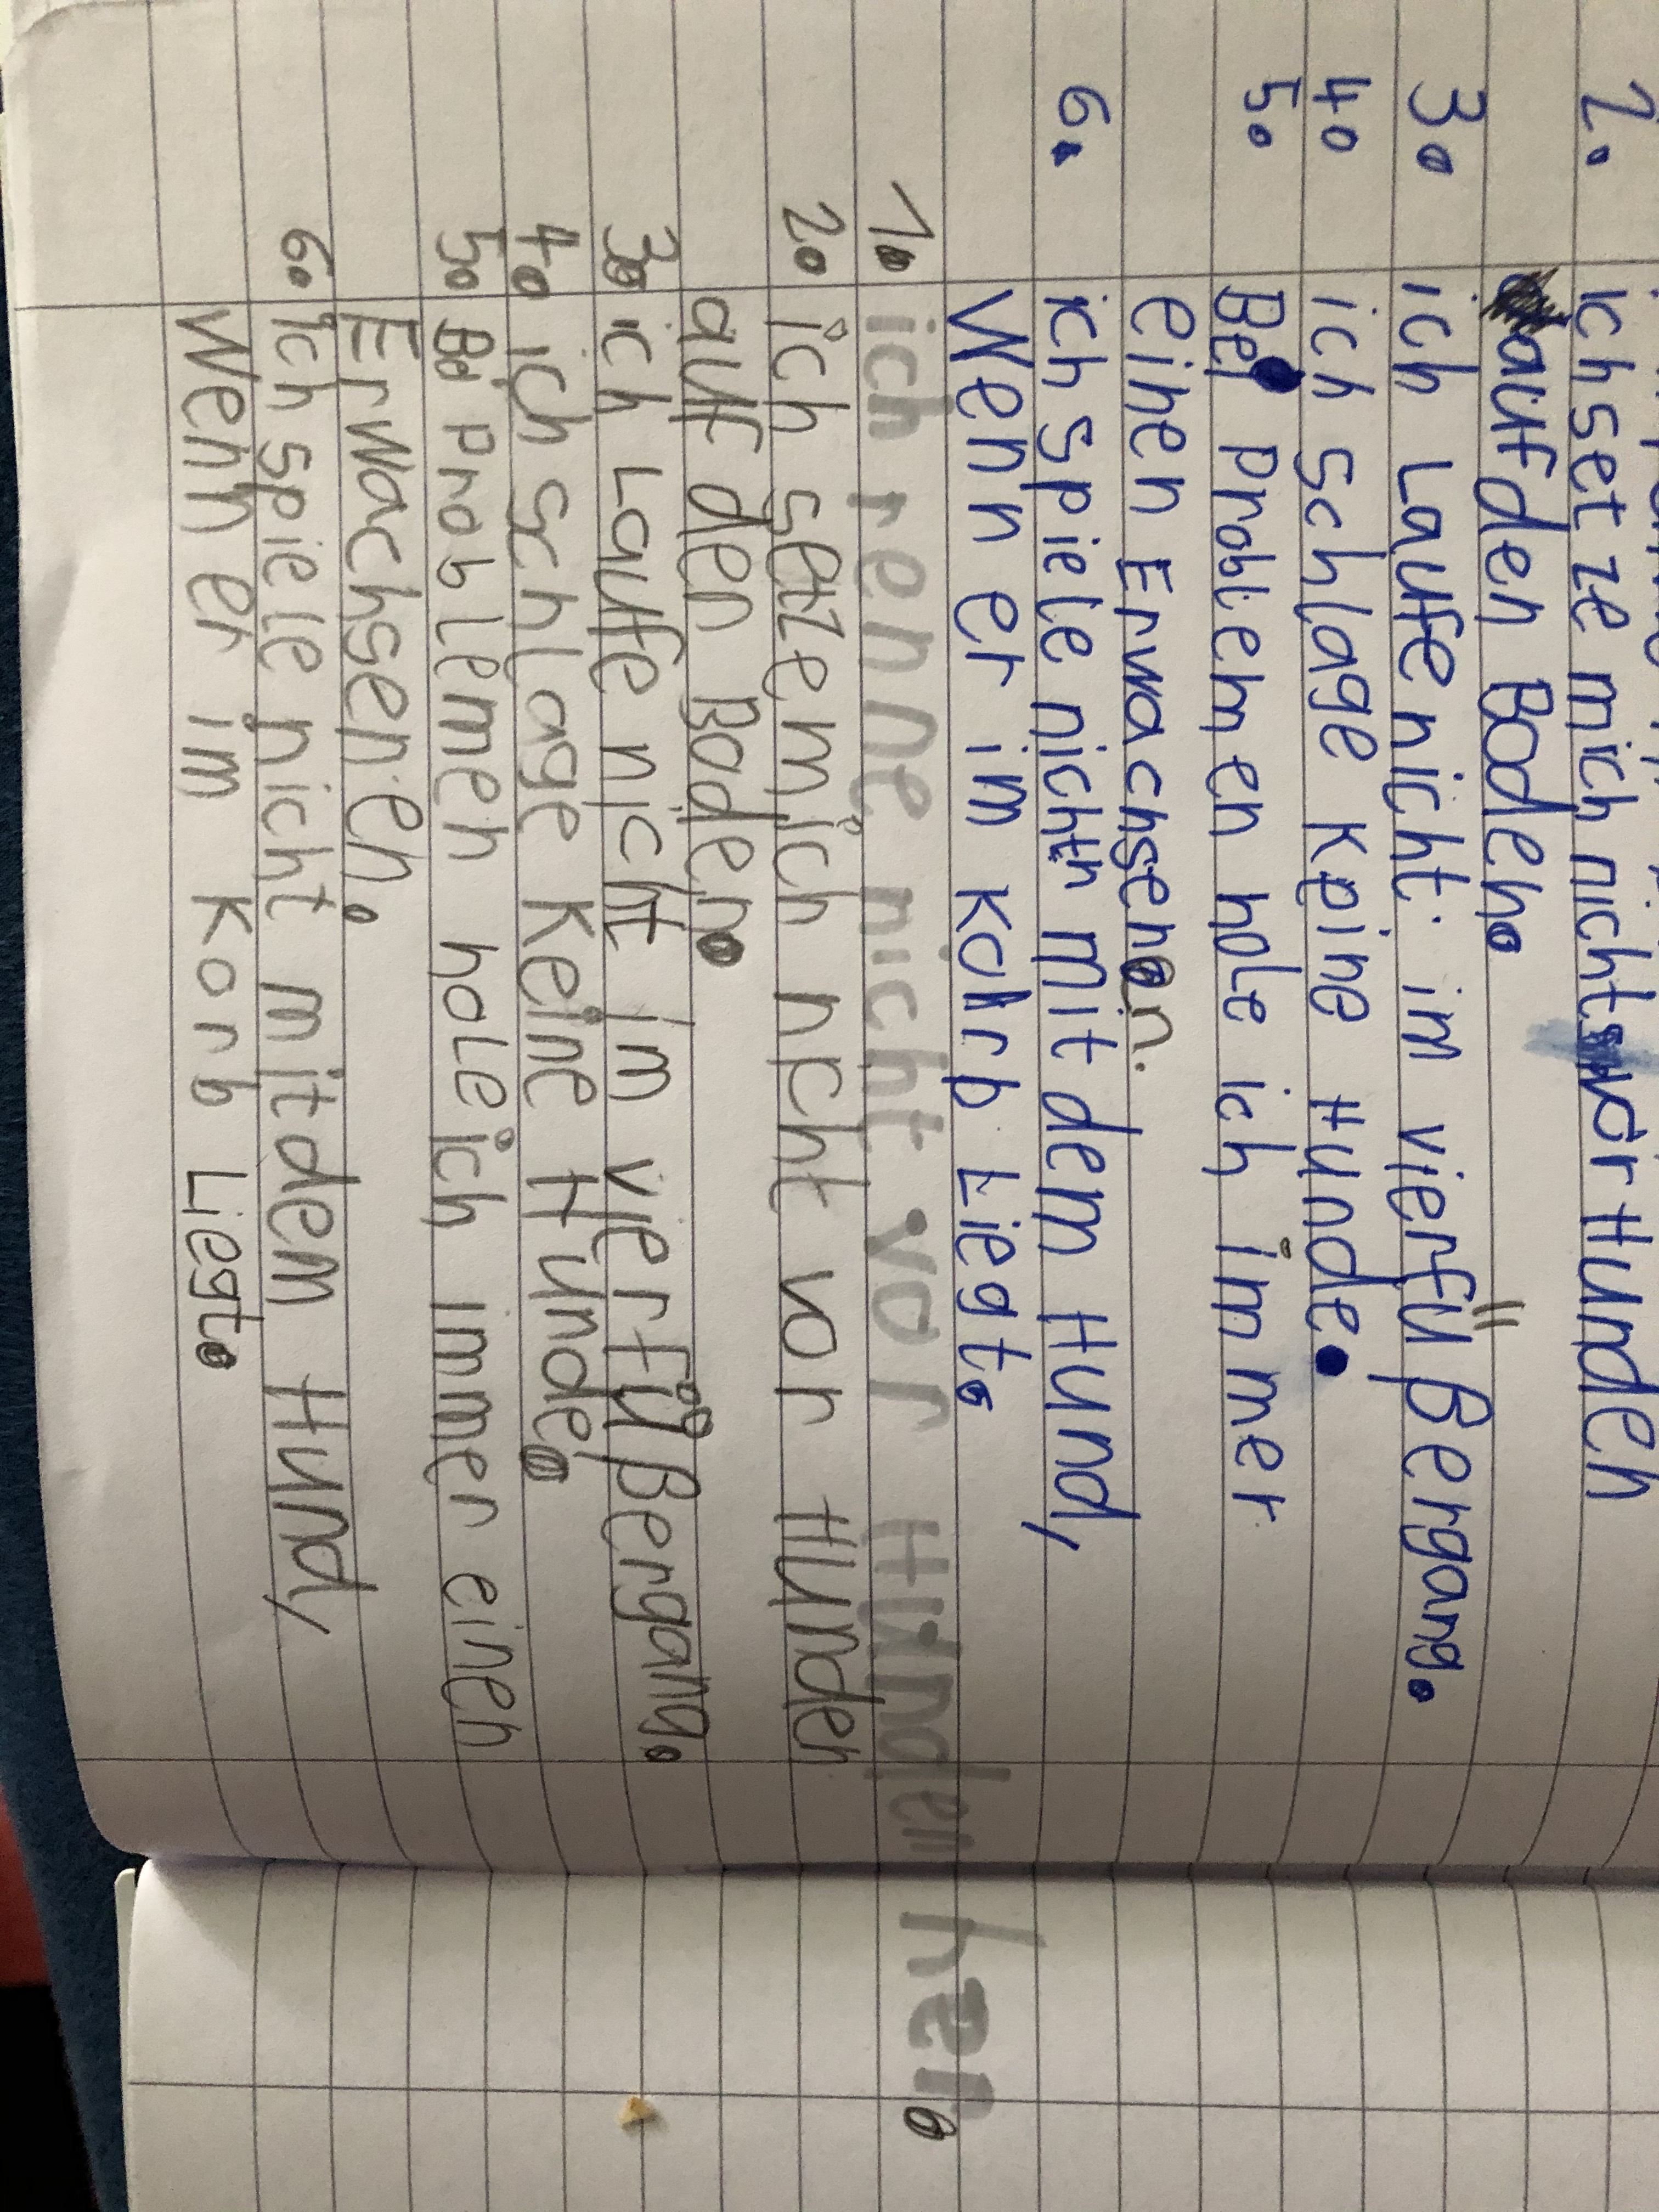 2. ich setze mich nicht vor Hunden
auf den Boden.
3. ich Laufe nicht im vierfüßergang.
4. ich schlage Keine Hunde.
5. Bei Problemen hole ich immer
einen Erwachsenen.
6. ich spiele nicht mit dem Hund,
Wenn er im Korb Liegt.
1. ich renne nicht vor Hunden her.
2. ich setze mich nicht vor Hunden
auf den Boden.
3. ich Laufe nicht im vierfüßergang.
4. ich schlage Keine Hunde.
5. Bei problemen hole ich immer einen
Erwachsenen.
6. ich spiele nicht mit dem Hund,
Wenn er im Korb Liegt.